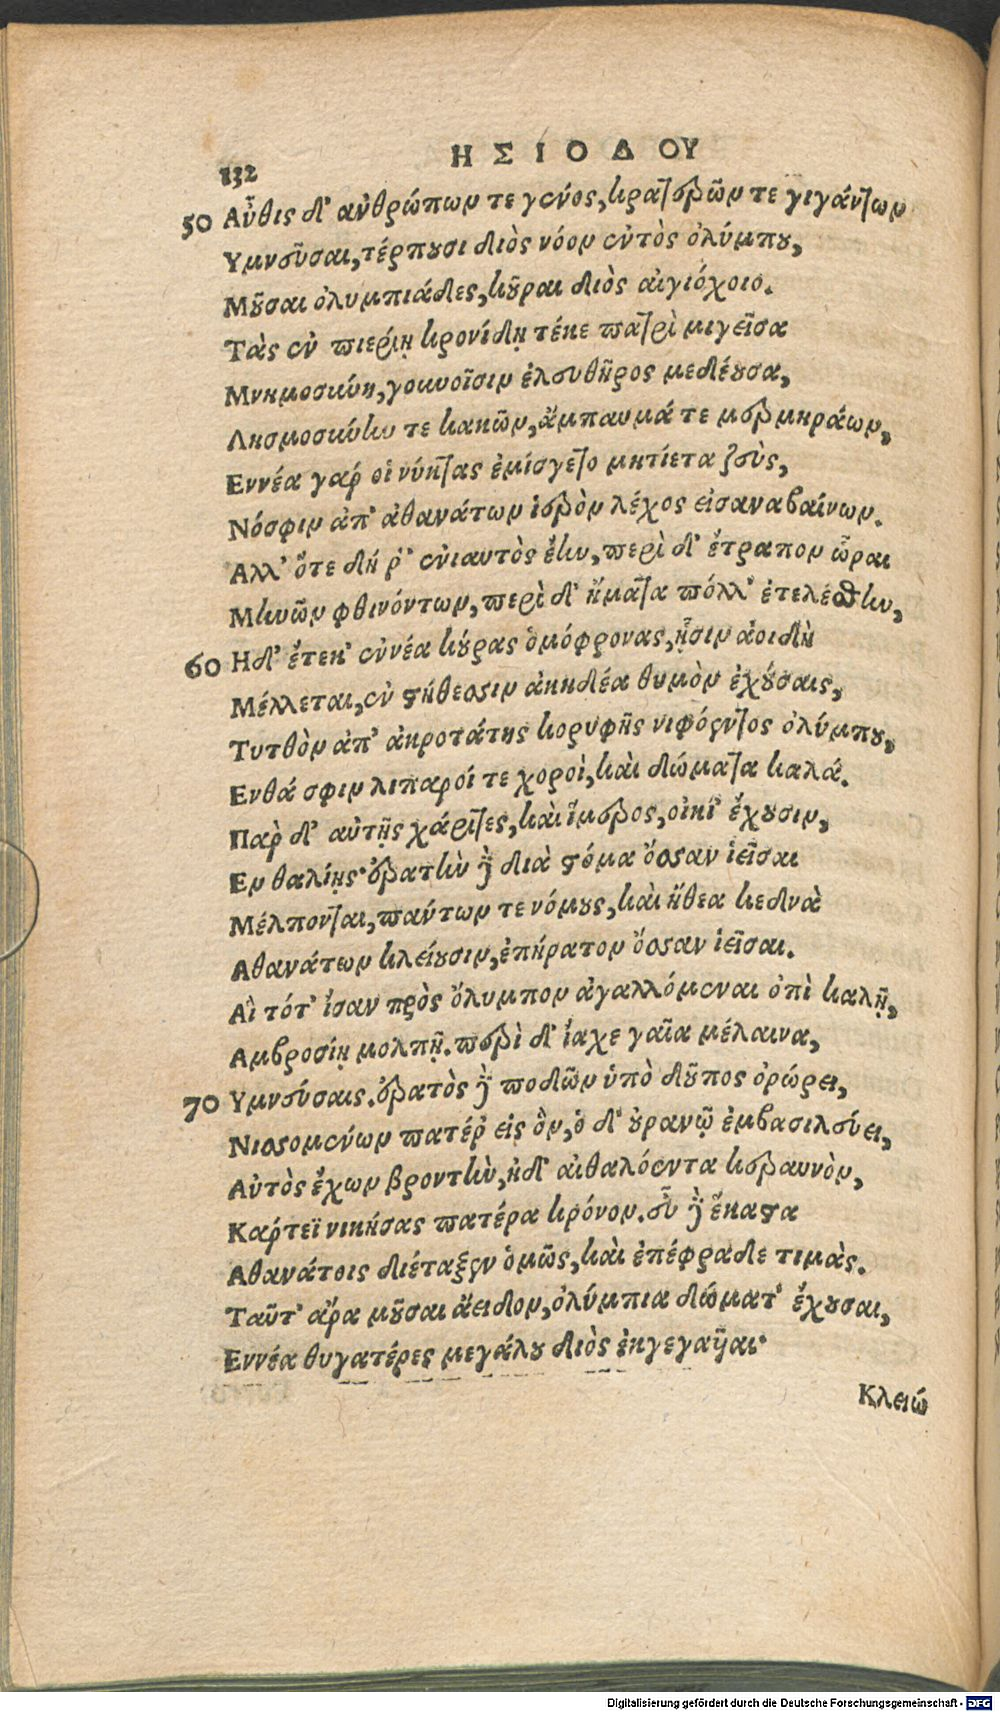 132 ΗΣΙΟΔΟΥ
50 Αὖθις δ' ἀνθρώπων τε γένος, κρατερῶν τε γιγάντων
Υμνεῦσαι, τέρπουσι διὸς νόον ἐντὸς ὀλύμπου,
Μοῦσαι ὀλυμπιάδες, κοῦραι διὸς αἰγιόχοιο.
Τὰς ἐν πιερίῃ κρονίδῃ τέκε πατρὶ μιγεῖσα
Μνημοσύνη, γουνοῖσιν ἐλευθῆρος μεδέουσα,
Λησμοσύνην τε κακῶν, ἄμπαυμά τε μερμηράων,
Εννέα γάρ οἱ νύκτας ἐμίσγετο μητίετα ζεὺς,
Νόσφιν ἀπ' ἀθανάτων ἱερὸν λέχος εἰσαναβαίνων.
Αλλ' ὅτε δή ῥ' ἐνιαυτὸς ἔην, περὶ δ' ἔτραπον ὧραι
Μηνῶν φθινόντων, περὶ δ' ἤματα πόλλ' ἐτελέσθην,
60 Ηδ' ἔτεκ' ἐννέα κούρας ὁμόφρονας, ᾗσιν ἀοιδὴ
Μέλλεται, ἐν στήθεσσιν ἀκηδέα θυμὸν ἐχούσαις,
Τυτθὸν ἀπ' ἀκροτάτης κορυφῆς νιφόεντος ὀλύμπου,
Ενθά σφιν λιπαροί τε χοροὶ, καὶ δώματα καλά.
Παρ δ' αὐτῇς χάριτες, καὶ ἵμερος, οἰκί' ἔχουσιν,
Εν θαλίῃς· ἐρατὴν δὲ διὰ στόμα ὄσσαν ἱεῖσαι
Μέλπονται, πάντων τε νόμους, καὶ ἤθεα κεδνὰ
Αθανάτων κλείουσιν, ἐπήρατον ὄσσαν ἱεῖσαι.
Αἳ τότ' ἴσαν πρὸς ὄλυμπον ἀγαλλόμεναι ὀπὶ καλῇ,
Αμβροσίῃ μολπῇ. περὶ δ' ἴαχε γαῖα μέλαινα,
70 Υμνεύσαις. ἐρατὸς δὲ ποδῶν ὑπὸ δοῦπος ὀρώρει,
Νισσομένων πατέρ' εἰς ὃν, ὁ δ' οὐρανῷ ἐμβασιλεύει,
Αὐτὸς ἔχων βροντὴν, ἠδ' αἰθαλόεντα κεραυνὸν,
Κάρτεϊ νικήσας πατέρα κρόνον. εὖ δὲ ἕκαστα
Αθανάτοις διέταξεν ὁμῶς, καὶ ἐπέφραδε τιμὰς.
Ταῦτ' ἄρα μοῦσαι ἄειδον, ὀλύμπια δώματ' ἔχουσαι,
Εννέα θυγατέρες μεγάλου διὸς ἐκγεγαυῖαι·
Κλειώ
Digitalisierung gefördert durch die Deutsche Forschungsgemeinschaft - DFG